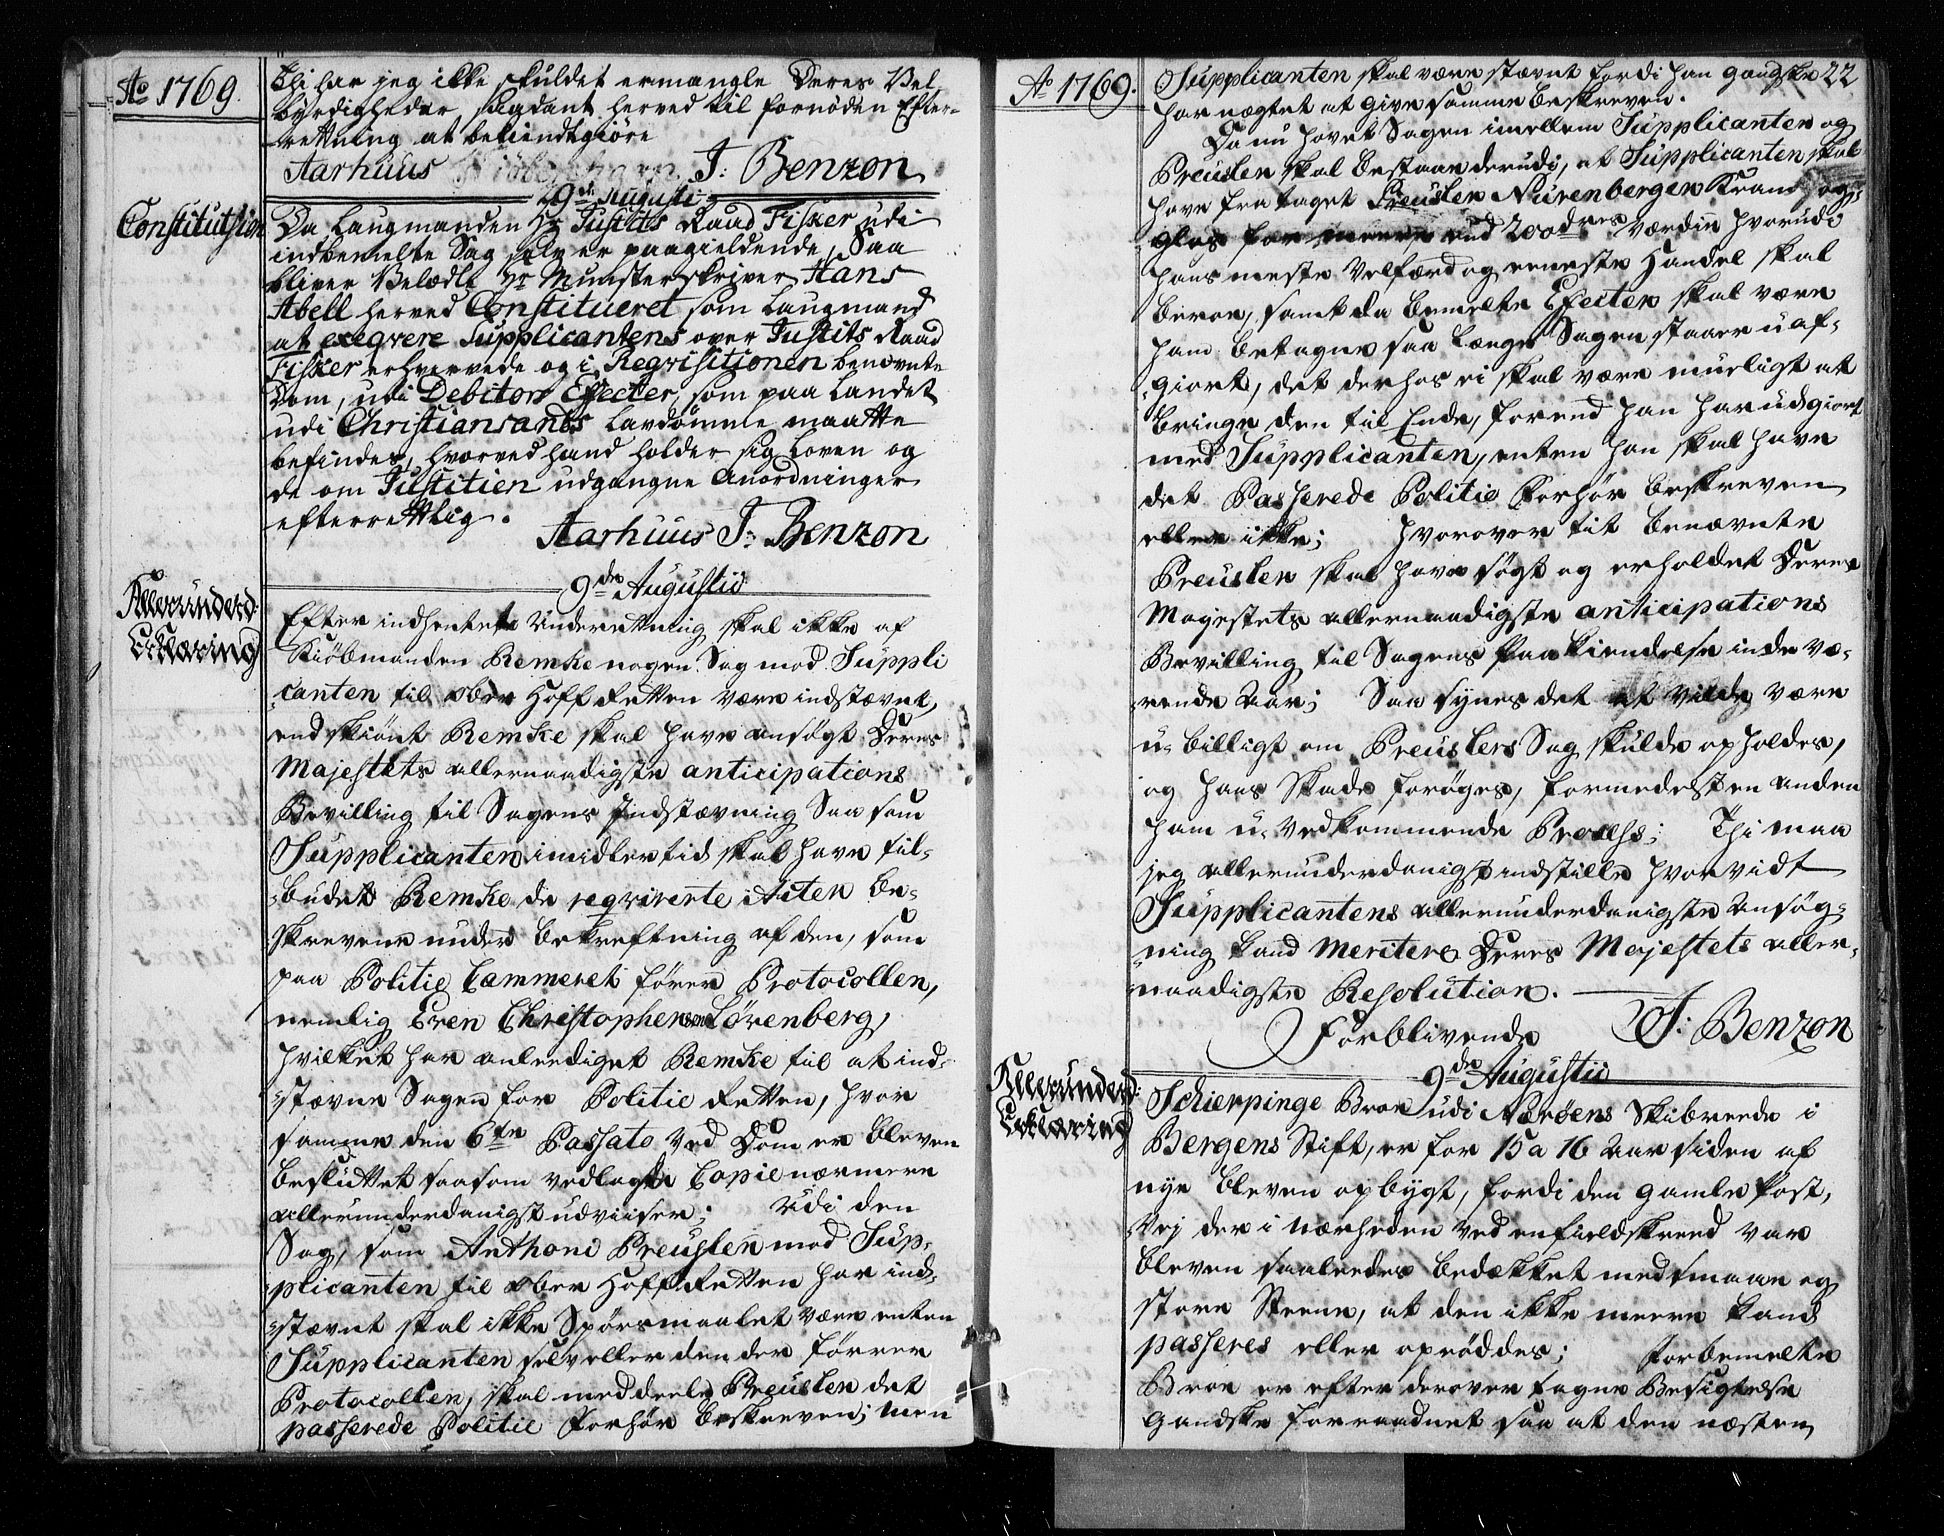 Ao 1769.
Thi har jeg ikke skuldet ermangle Deres Vel-
byrdigheder saadant herved til fornøden Efter-
rettning at bekiendtgiöre
Aarhuus J: Benzon
9de Augusti
Constitution
Da Laugmanden Hr Justits Raad Fisker udi
indbemelte Sag selv er paagieldende, Saa
bliver Velædle Hr Munsterskriver Hans
Abell herved Constitueret som Laugmand
at exeqvere Supplicantens over Justits Raad
Fisker erhvervede og i Reqvisitionen benævnte
Dom, udi Debitors Effecter, som paa Landet
udi Christiansands Lavdömme maatte
befindes, hvorved hand holder sig Loven og
de om Justitien udgangne Anordninger
efterrettlig.
Aarhuus J: Benzon
9de Augustii
Allerunderd:
Erklæring
Efter indhentete Underretning skal ikke af
Kiöbmanden Remke nogen Sag mod Suppli
canten til Ober Hoff Retten være indstævnet,
endskiönt Remke skal have ansögt Deres
Majestets allernaadigste anticipations
Bevilling til Sagens Indstævning Saa som
Supplicanten imidlertid skal have til-
budet Remke de reqvirerte Acten be-
skrevene under bekreftning af den, som
paa Politie Cammeret förer Protocollen,
nemlig Even Christophersen Sörenberg,
hvilket har anleediget Remke til at ind-
stævne Sagen for Politie Retten, hvor
samme den 6te Passato ved Dom er bleven
besluttet saasom vedlagte Copie nærmere
allerunderdanigst udviiser; Udi den
Sag, som Anthoni Preuslen mod Sup-
plicanten til Ober Hoff Retten har ind-
stævnt skal ikke Spörsmaalet være enten
Supplicanten selv eller den der förrer
Protocollen, skal meddeele Preuslen det
passerede Politie Forhör beskreven; men
Ao 1769.
22
Supplicanten skal være stævnt fordi han gandske
har nægtet at give samme beskreven.
Da nu hovet Sagen imellem Supplicanten og
Preuslen skal bestaae derudi, at Supplicanten skal
have fra taget Preuslen Nurenberger Kram og
glas for meere end 200 drs Værdie hvorudi
hans meste Velfærd og eeneste Handel skal
beroe, samt da bemelte Efecter skal være
ham betagne saa længe Sagen staaer uaf-
giort, det derhos ei skal være mueligt at
bringe den til Ende, forend han har udgiort
med Supplicanten, enten han skal have
det Passerede Politie Forhör beskreven
eller ikke; hvorover tit benævnte
Preuslen skal have sögt og erholdet Deres
Majestets allernaadigste anticipations
Bevilling til Sagens Paakiendelse inde væ-
rende Aar; Saa synes det at vilde være
u-billigt om Preuslers Sag skulde opholdes,
og hans Skade foröges, formedelst en anden
ham u-vedkommende Process; Thi maa
jeg allerunderdanigst indstille hvorvidt
Supplicantens allerunderdanigste Ansög-
ning kand meritere Deres Majestets aller-
naadigste Resolution.
Forblivende J: Benzon
9de Augustii
Allerunderd:
Erklæring
Schierpinge Broe udi Nærøens Skibreede i
Bergens Stift, er for 15 a 16 Aar siden af
nye bleven opbygt, fordi den gamle Post,
Vej der i nærheden ved en fieldskreed var
bleven saaleedes bedækket med smaae og
store Steene, at den ikke meere kand
passeres eller oprøddes; forbemelte
Broe er efter derover tagne Besigtelse
gandske forraadnet saa at den næsten